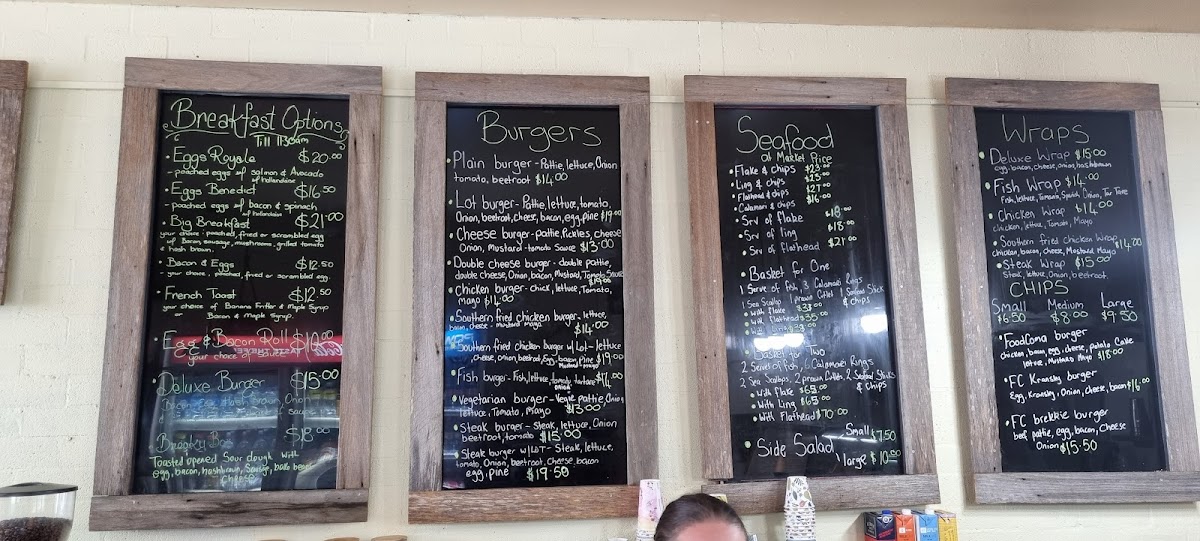 Breakfast Options
Till 11:30am
• Eggs Royale $20.00
- poached eggs w/ salmon & Avocado
w/ Hollandaise
• Eggs Benedict $16.50
- poached eggs w/ bacon & spinach
w/ Hollandaise
• Big Breakfast $21.00
your choice - poached, fried or scrambled egg
w/ Bacon, sausage, mushrooms, grilled tomato
& hash brown.
• Bacon & Eggs $12.50
- your choice - poached, fried or scrambled egg
• French Toast $12.50
your choice of Banana Fritter & Maple Syrup
or Bacon & Maple Syrup.
• Egg & Bacon Roll $10.00
your choice of
• Deluxe Burger $15.00
Bacon, Egg, Hash brown, Onion
sauce
$18.00
Toasted opened Sour dough with
egg, bacon, hashbrown,
cheese
Burgers
• Plain burger - Pattie, lettuce, Onion
tomato, beetroot $14.00
• Lot burger - Pattie, lettuce, tomato,
Onion, beetroot, cheese, bacon, egg, pine $19.00
• Cheese burger - pattie, Pickles, cheese
Onion, Mustard - tomato Sauce $13.00
• Double cheese burger - double pattie,
double cheese, Onion, bacon, Mustard, Tomato Sauce
$19.00
• Chicken burger - chick, lettuce, Tomato,
mayo $14.00
• Southern fried chicken burger - lettuce,
bacon, cheese - mustard Mayo $14.00
• Southern fried chicken burger w/ Lot - lettuce
, cheese, onion, beetroot, Egg, bacon, pine $19.00
mustard mayo
• Fish burger - Fish, lettuce, tomato, tartare $14.00
onion
• Vegetarian burger - Vegie pattie, Onion
lettuce, Tomato, Mayo $13.00
• Steak burger - Steak, lettuce, Onion
beetroot, tomato $15.00
• Steak burger w/ LOT - Steak, lettuce,
tomato, Onion, beetroot, Cheese, bacon
egg, pine $19.50
Seafood
at Market Price
• Flake & chips $23.00
• Ling & chips $23.00
• Flathead & chips $27.00
• Calamari & chips $16.00
• Srv of flake $18.00
• Srv of ling $18.00
• Srv of flathead $21.00
• Basket for One
1 Serve of fish, 3 Calamari Rings
1 Sea Scallop 1 prawn Cutlet 1 Seafood Stick
& chips
• With flake
• With Flathead $35.00
• With Ling
• Basket for Two
2 Serves of fish, 6 Calamari Rings
2 Sea Scallops, 2 prawn Cutlets, 2 Seafood Sticks
& Chips
• With flake $65.00
• With Ling $65.00
• With Flathead $70.00
• Side Salad Small $7.50
large $10.00
Wraps
• Deluxe Wrap $15.00
egg, bacon, cheese, onion, hashbrown
• Fish Wrap $14.00
Fish, lettuce, Tomato, Spanish Onion, Tar Tare
• Chicken Wrap $14.00
chicken, lettuce, Tomato, Mayo
• Southern fried chicken Wrap $14.00
chicken, bacon, cheese, Mustard Mayo
• Steak Wrap $15.00
Steak, lettuce, Onion, beetroot.
CHIPS
Small Medium Large
$6.50 $8.00 $9.50
• FoodComa burger
chicken, bacon, egg, cheese, potato Cake
lettuce, Mustard Mayo $18.00
• FC Kransky burger
Egg, Kransky, Onion, Cheese, bacon $16.00
• FC brekkie burger
beef pattie, egg, bacon, Cheese
Onion $15.50